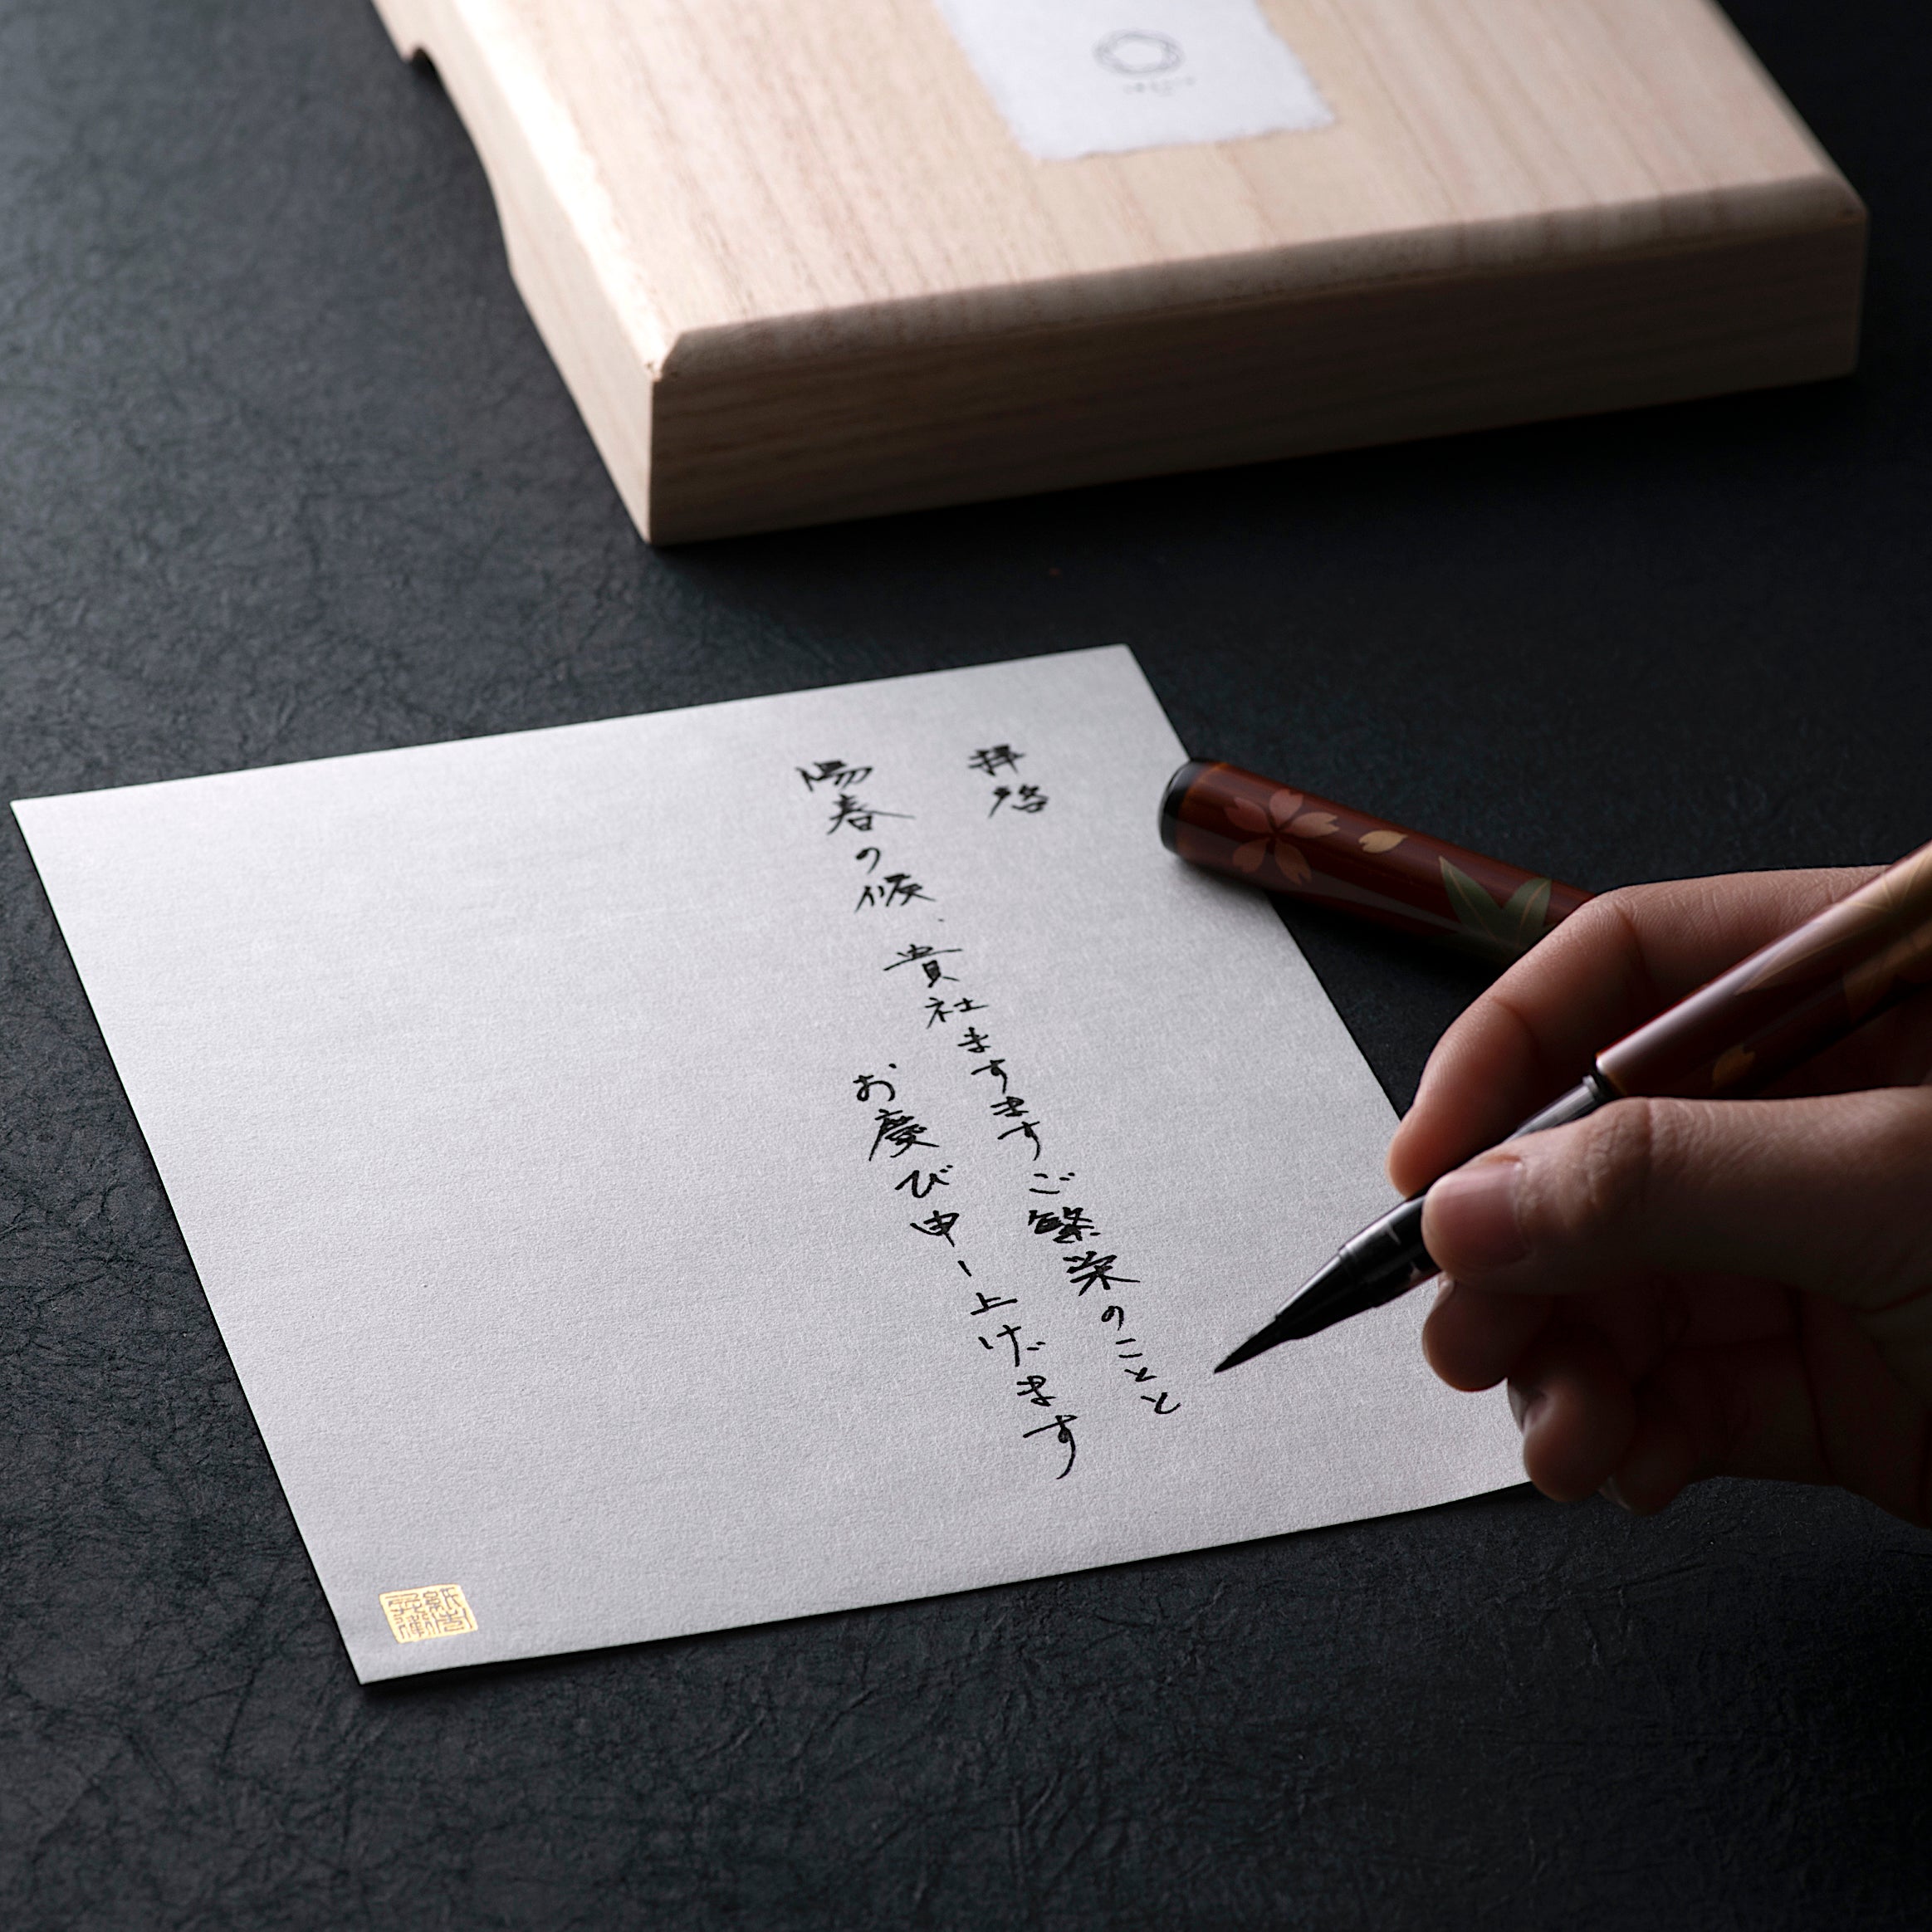 拝啓
陽春の候、貴社ますますご繁栄のことと
お慶び申し上げます